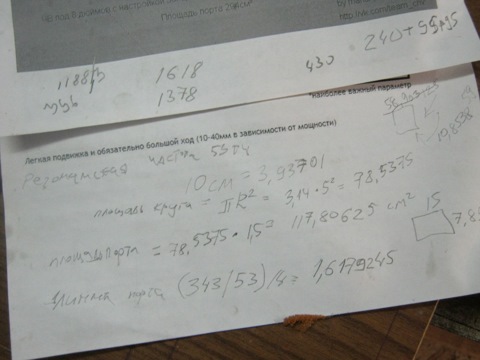 ЧВ под 8 дюймов с настройкой
Площадь порта 294см²
http://vk.com/team_chr
240+95,95
1188
1618
430
1378
*наиболее важный параметр
Легкая подвижка и обязательно большой ход (10-40мм в зависимости от мощности)
Резонансная частота 53 Гц
10см = 3,93701
площадь круга = ПR² = 3,14·5² = 78,5375
площадь порта = 78,5375·1,5= 117,80625 см²
15
7,85
длинна порта (343/53)/4= 1,6179245